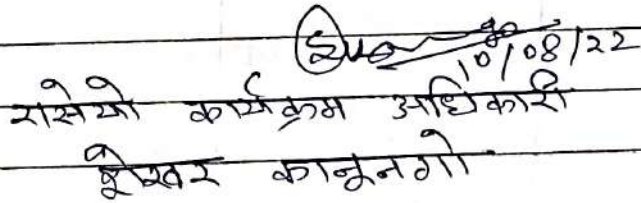 10/08/22
रासेयो कार्यक्रम अधिकारी
शेखर कानूनगो